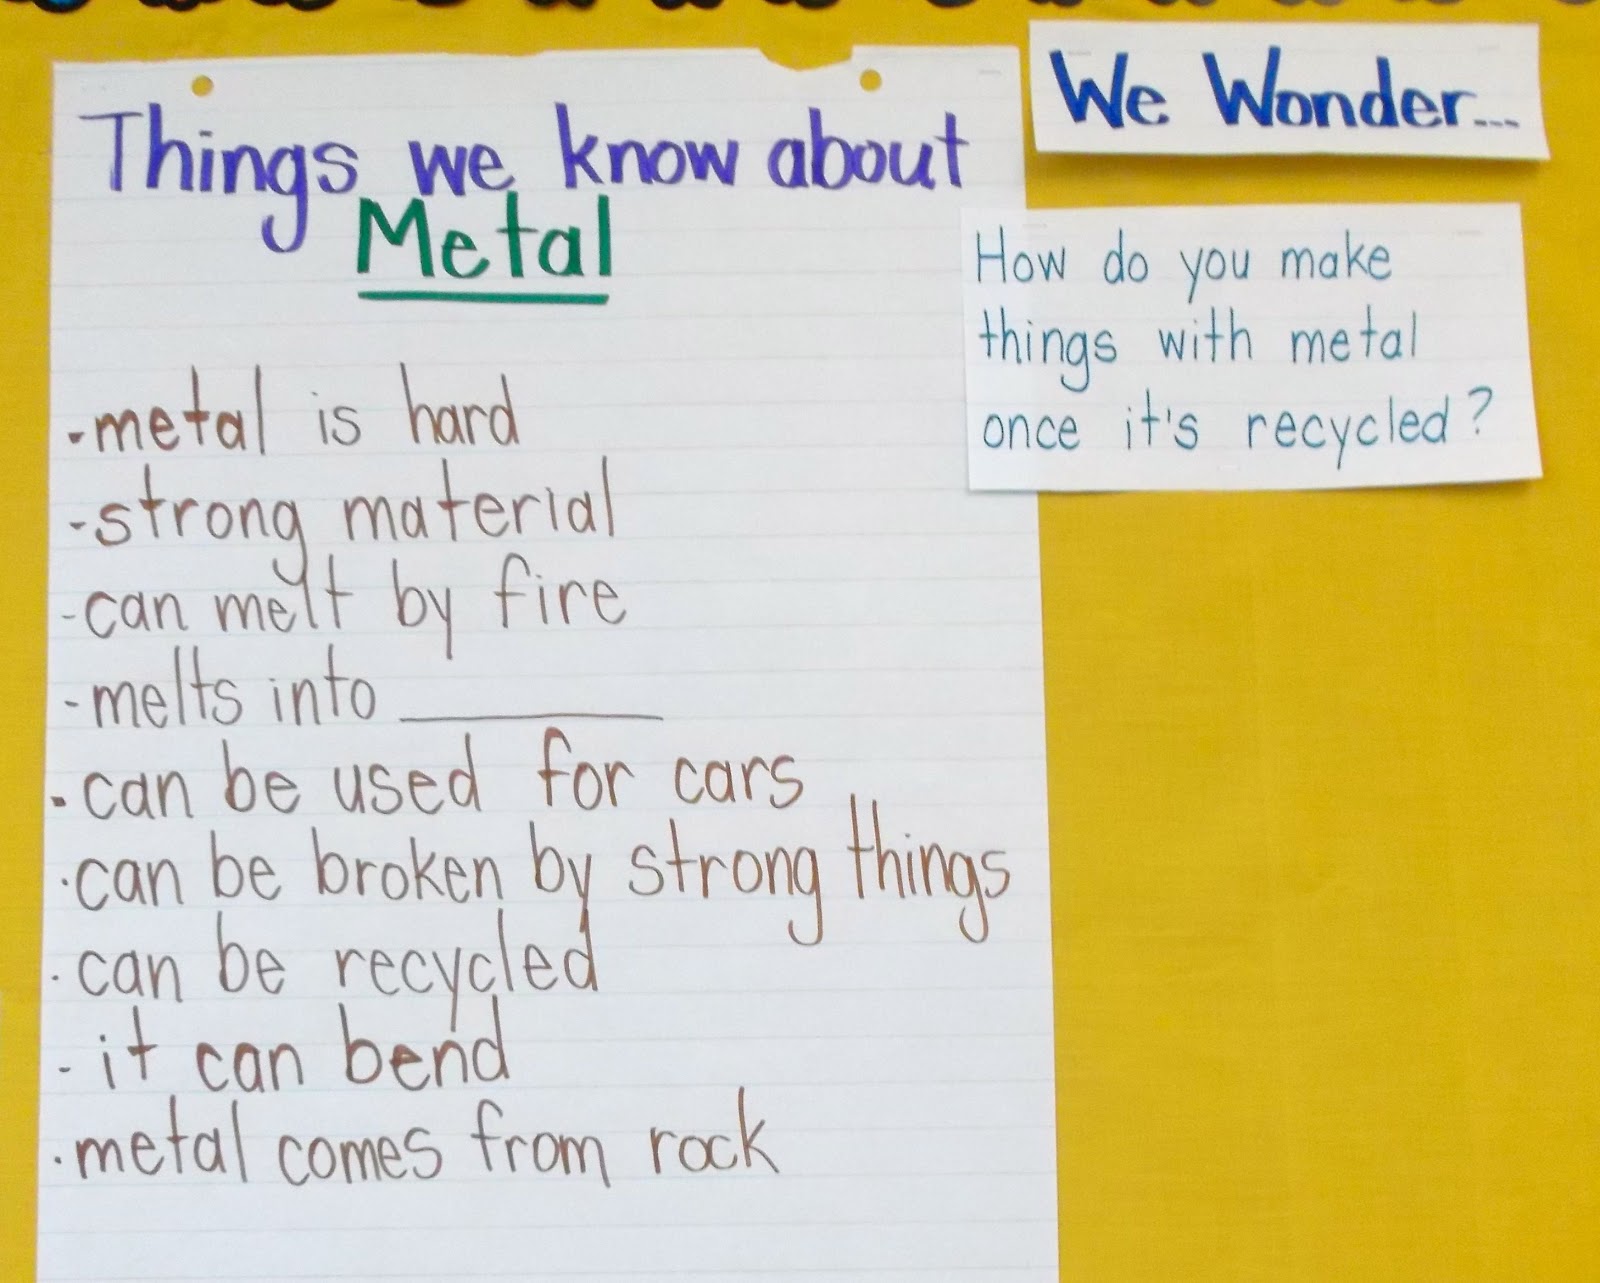 Things we know about
Metal
-metal is hard
-strong material
-can melt by fire
-melts into __________
-can be used for cars
·can be broken by strong things
·can be recycled
- it can bend
·metal comes from rock
We Wonder...
How do you make
things with metal
once it's recycled?